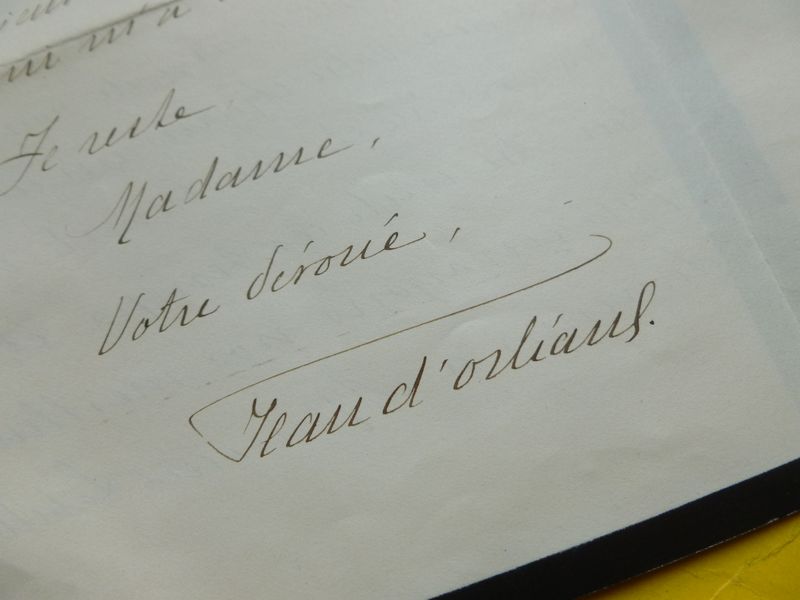 m'a
Je reste,
Madame,
Votre dévoué,
Jean d'orléans.